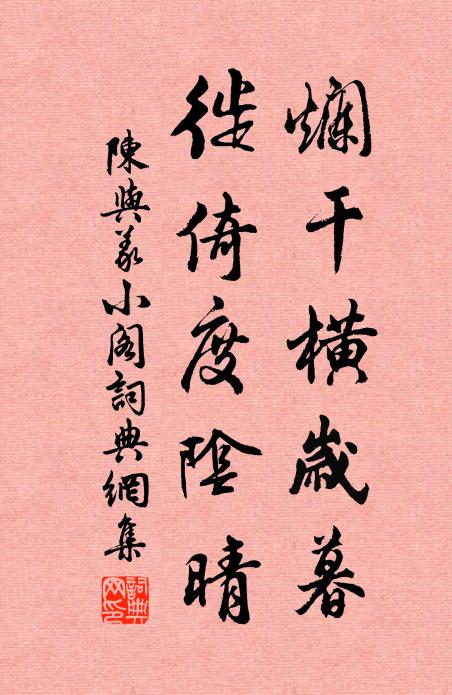 爛干橫歲暮
徙倚度陰晴
陳與義小閣詞典網集
詞典
网印